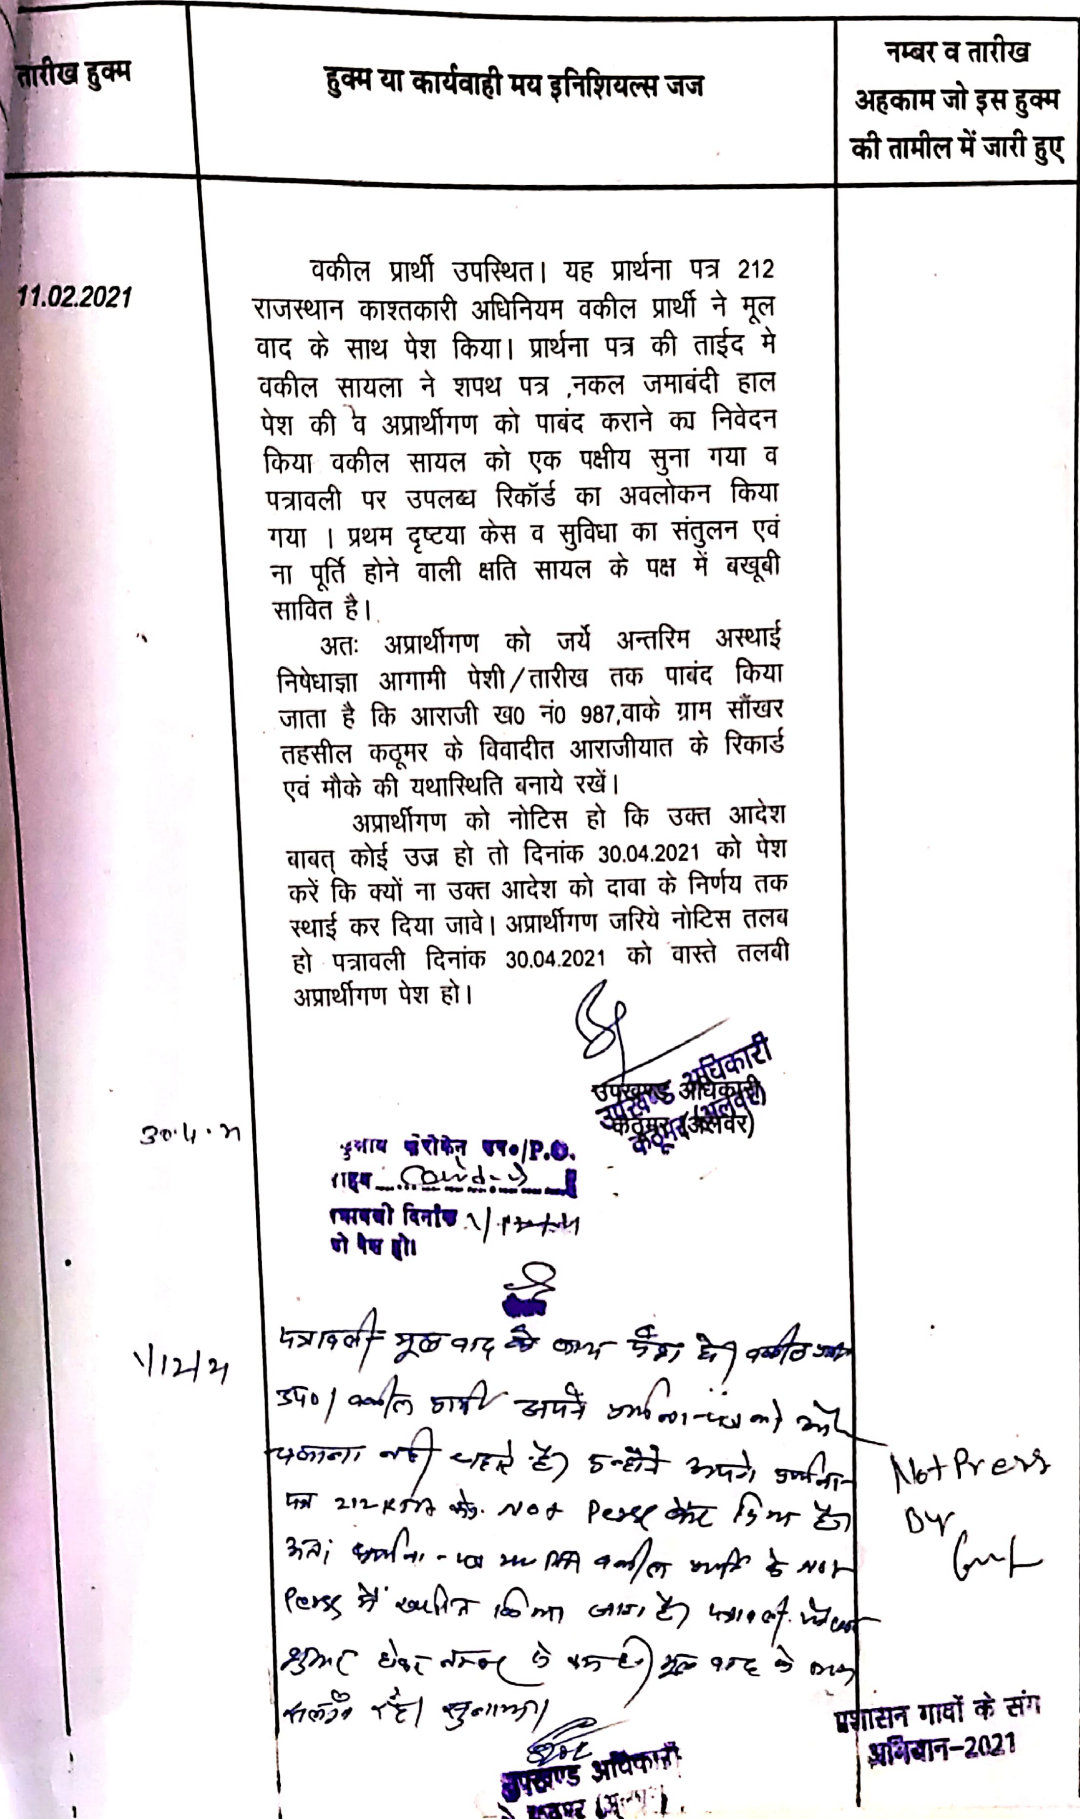 तारीख हुक्म
हुक्म या कार्यवाही मय इनिशियल्स जज
नम्बर व तारीख
अहकाम जो इस हुक्म
की तामील में जारी हुए
11.02.2021
वकील प्रार्थी उपस्थित। यह प्रार्थना पत्र 212
राजस्थान काश्तकारी अधिनियम वकील प्रार्थी ने मूल
वाद के साथ पेश किया। प्रार्थना पत्र की ताईद मे
वकील सायला ने शपथ पत्र ,नकल जमाबंदी हाल
पेश की व अप्रार्थीगण को पाबंद कराने का निवेदन
किया वकील सायल को एक पक्षीय सुना गया व
पत्रावली पर उपलब्ध रिकॉर्ड का अवलोकन किया
गया । प्रथम दृष्टया केस व सुविधा का संतुलन एवं
ना पूर्ति होने वाली क्षति सायल के पक्ष में बखूबी
सावित है।
अतः अप्रार्थीगण को जर्ये अन्तरिम अस्थाई
निषेधाज्ञा आगामी पेशी/तारीख तक पाबंद किया
जाता है कि आराजी ख0 नं0 987,वाके ग्राम सौंखर
तहसील कठूमर के विवादीत आराजीयात के रिकार्ड
एवं मौके की यथास्थिति बनाये रखें।
अप्रार्थीगण को नोटिस हो कि उक्त आदेश
बाबत् कोई उज्र हो तो दिनांक 30.04.2021 को पेश
करें कि क्यों ना उक्त आदेश को दावा के निर्णय तक
स्थाई कर दिया जावे। अप्रार्थीगण जरिये नोटिस तलब
हो पत्रावली दिनांक 30.04.2021 को वास्ते तलबी
अप्रार्थीगण पेश हो।
उपखण्ड अधिकारी
कठूमर (अलवर)
उपखण्ड अधिकारी
कठूमर (अलवर)
30.4.21
P.O.
Covid-19
दिनांक
को पेश हो।
1/12/21
पत्रावली मूल वाद के साथ पेश हुई। वकील
उप०। वकील प्रार्थी अपने प्रार्थना-पत्र को आगे
चलाना नहीं चाहते है। उन्होंने अपने प्रार्थना-
पत्र 212 RTA को Not Press किया है।
अतः प्रार्थना-पत्र वकील प्रार्थी के Not
Press में खारिज किया जाता है। पत्रावली फैसल
शुमार होकर नम्बर से कम हो। मूल वाद के साथ
संलग्न रहे। सुनाया।
Not Press
By
उपखण्ड अधिकारी
प्रशासन गावों के संग
अभियान-2021